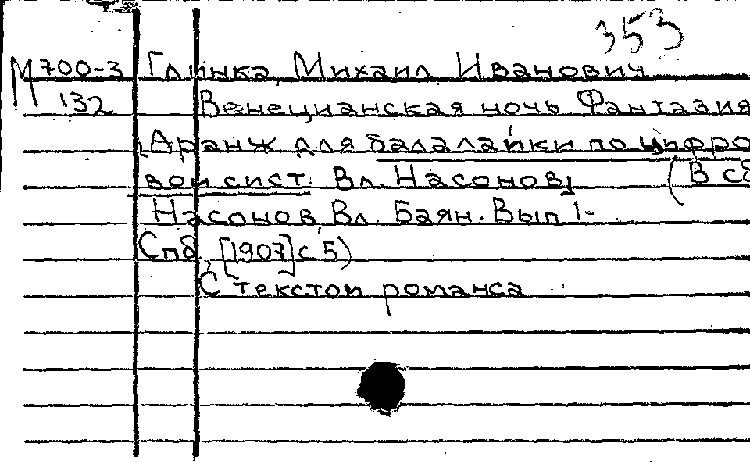 353
М 700-3 Глинка, Михаил Иванович
132 Венецианская ночь Фантазия
Аранж для балалайки по цифро
вой сист. Вл. Насонов, (В сб
Насонов Вл. Баян. Вып 1-
Спб, [1907] с 5)
С текстом романса